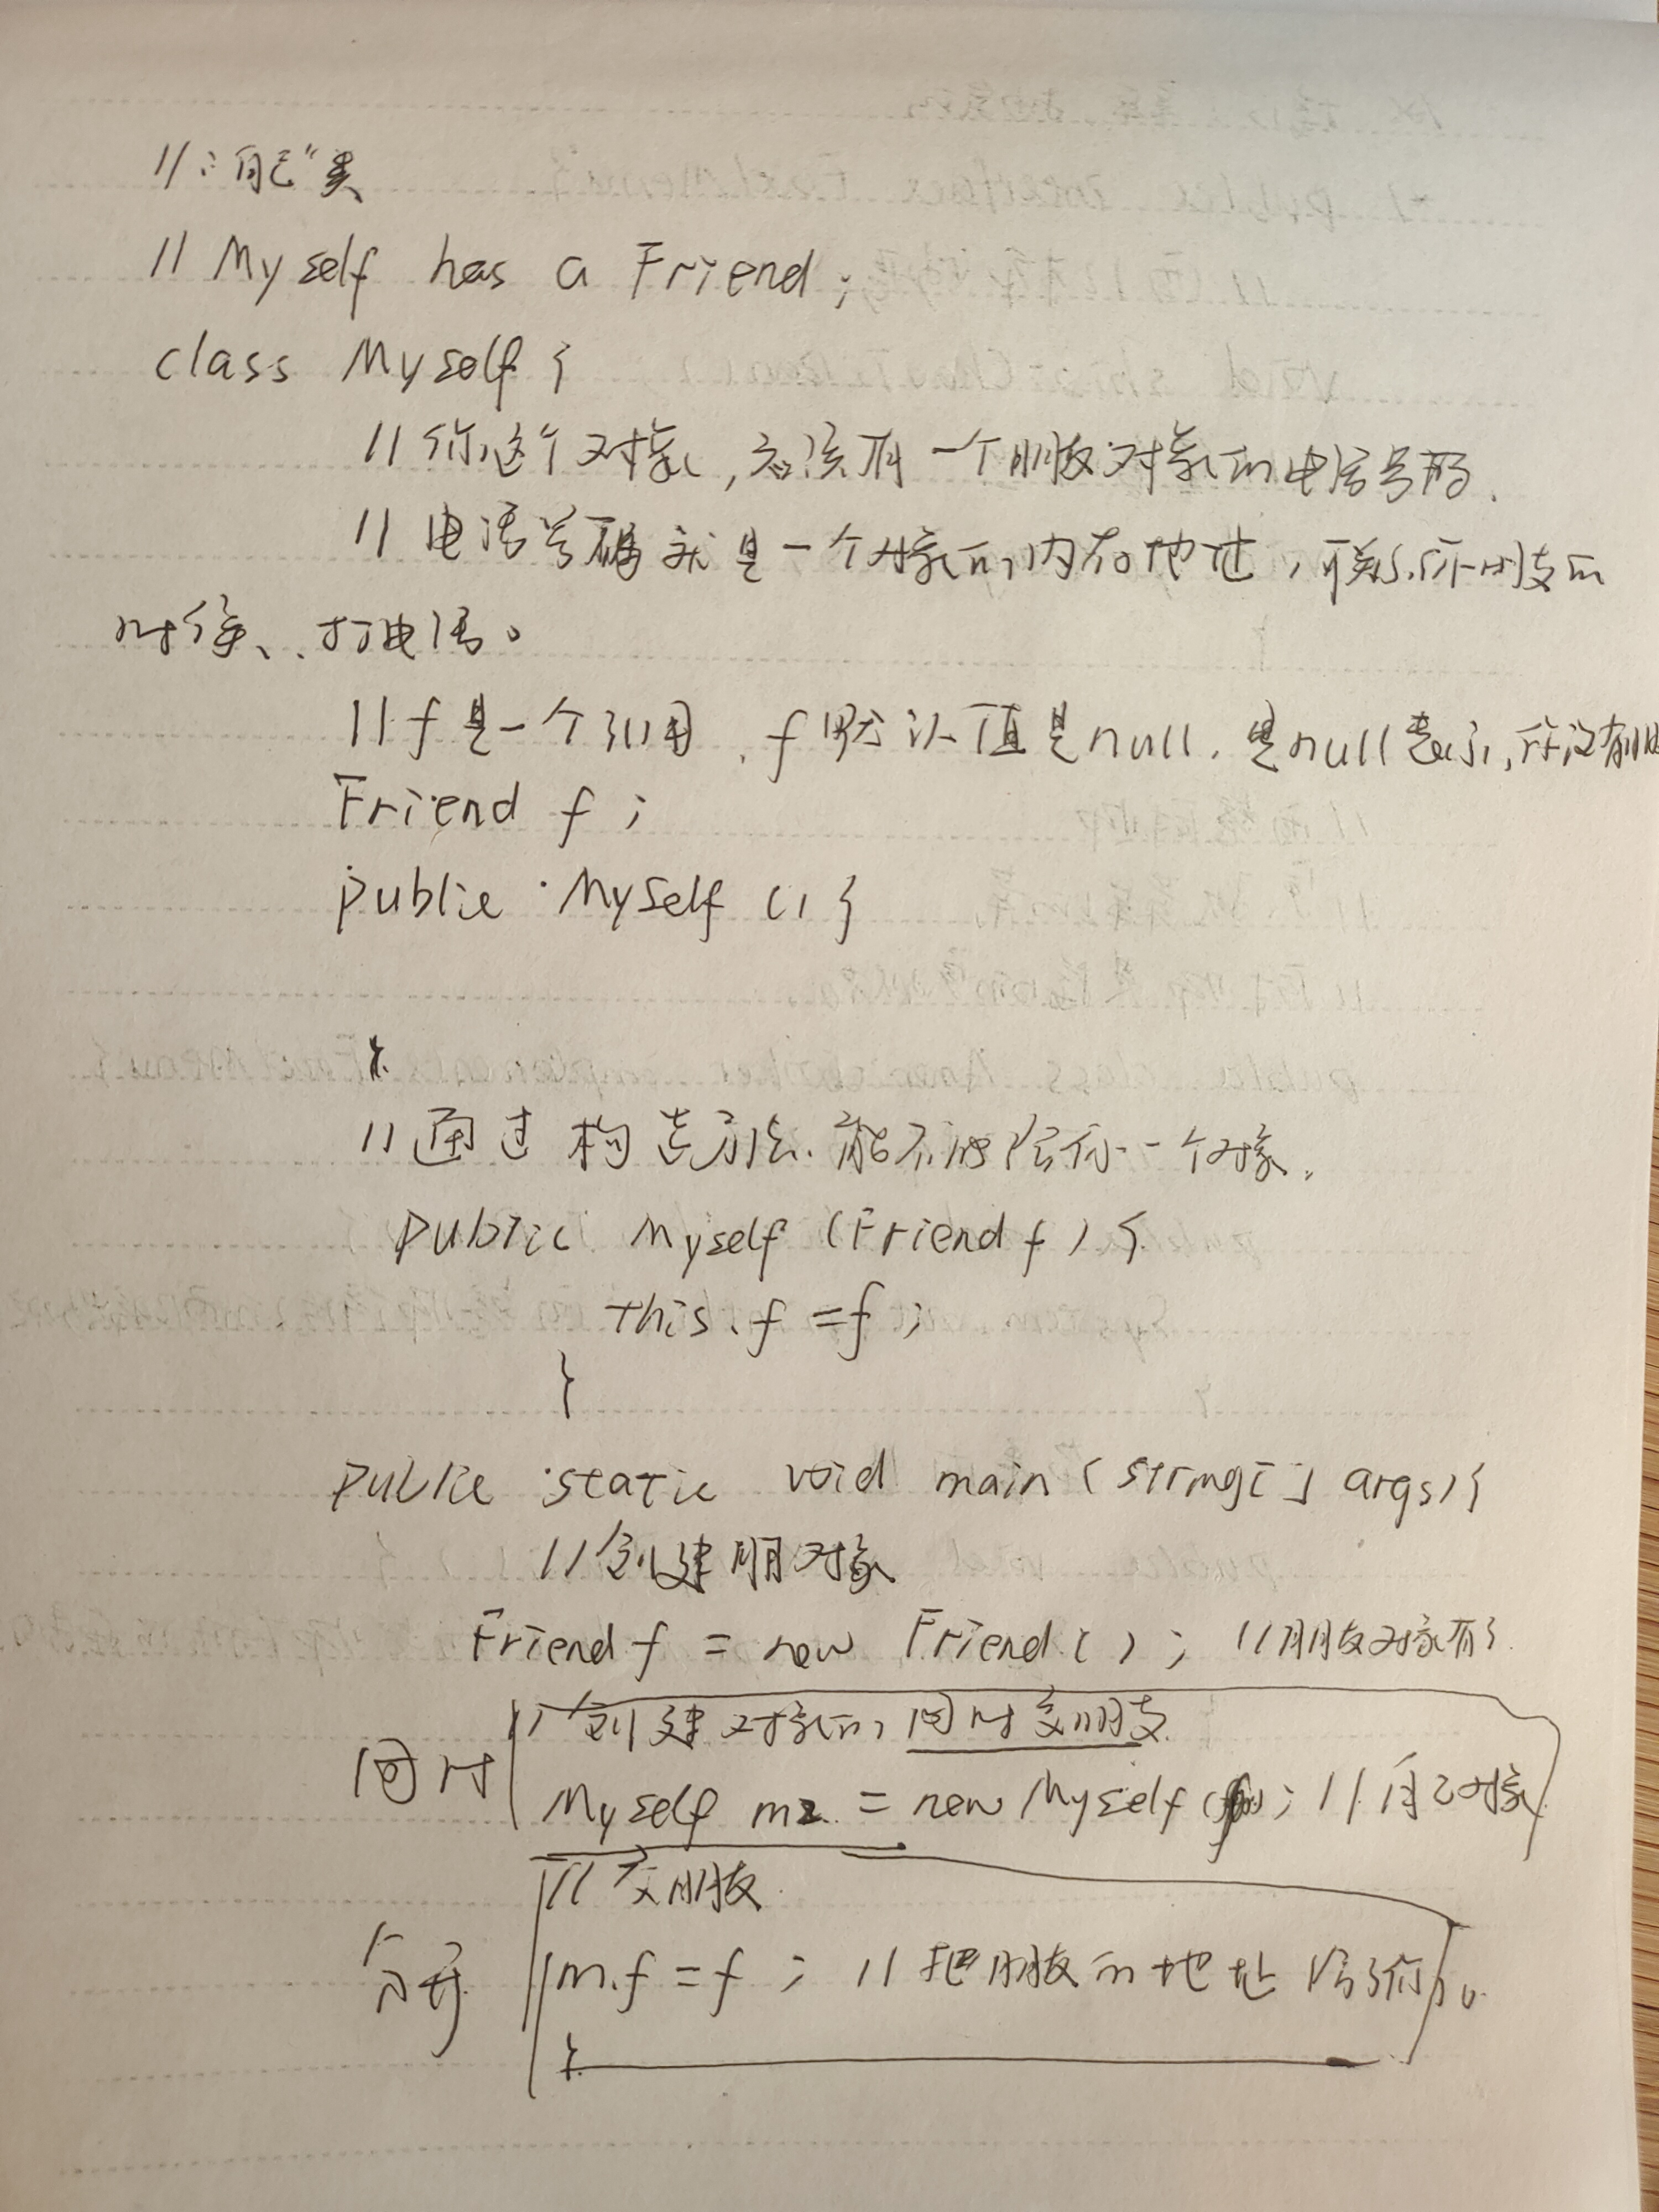 // "自己"类
// Myself has a Friend;
class Myself {
// 你这个对象,应该有一个朋友对象的电话号码.
// 电话号码就是一个对象的内存地址,联系你朋友的
时候、打电话。
// f是一个引用,f默认值是null.是null表示,你没有朋
Friend f;
public Myself () {
}
// 通过构造方法.能不能给你一个对象.
public Myself (Friend f) {
this.f = f;
}
public static void main (String[] args) {
// 创建朋对象
Friend f = new Friend ( ) ; // 朋友对象有了
// 创建对象的同时交朋友
同时 Myself m2 = new Myself ( ; // 自己对象
// 交朋友
分开 m.f = f ; // 把朋友的地址给了你。
}